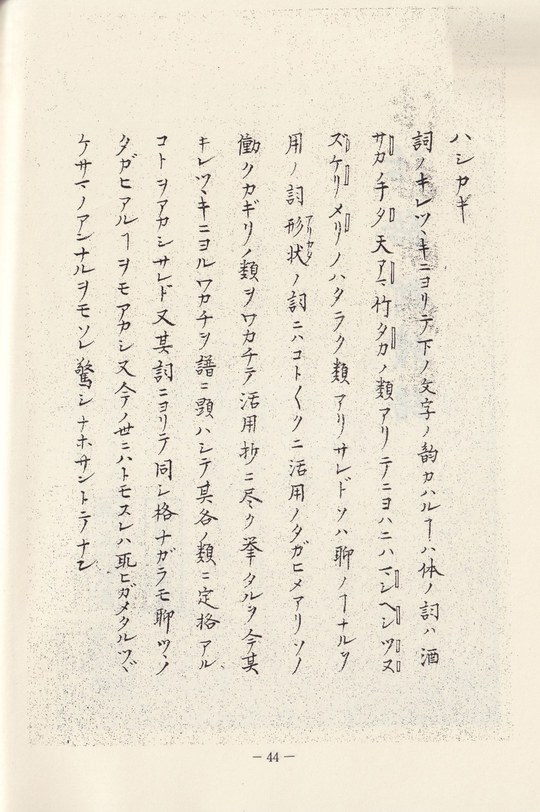 ハシカキ
詞ノキレツヽキニヨリテ下ノ文字ノ韵カハルヿハ体ノ詞ハ酒
サカノ手タ天アマ竹タカノ類アリテニヨハニハマシヘシツヌ
ズケリメリノハタラク類アリサレドソハ聊ノヿナルヲ
用ノ詞形状アリカタノ詞ニハコト〱クニ活用ノタガヒメアリソノ
働クカギリノ類ヲワカチテ活用抄ニ尽ク挙タルヲ今其
キレツヽキニヨルワカチヲ譜ニ顕ハシテ其各ノ類ニ定格アル
コトヲアカシサレド又其詞ニヨリテ同シ格ナガラモ聊ツヽノ
タガヒアルヿヲモアカシ又今ノ世ニハトモスレハ耳ヒガメタルツヾ
ケサマノアンナルヲモソレ驚シナホサントテナン
－44－